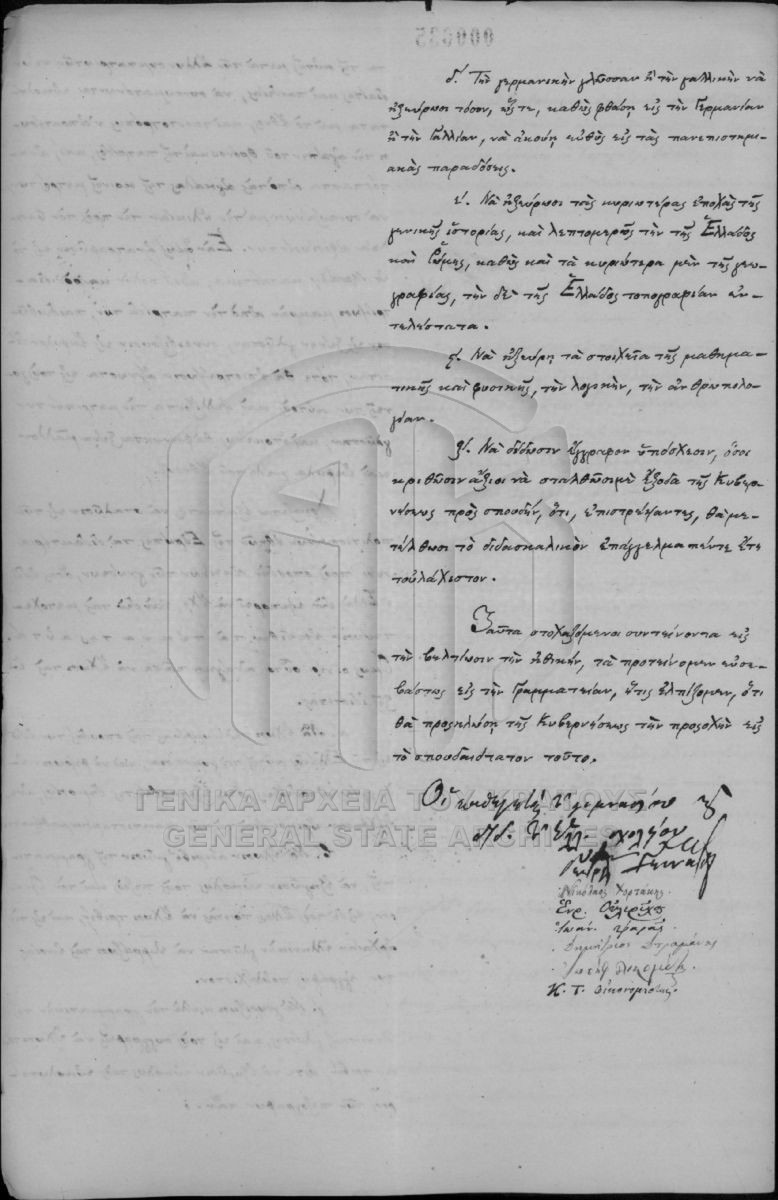 000035
δ'. Τὴν γερμανικὴν γλῶσσαν ἢ τὴν γαλλικὴν νὰ
ἠξεύρωσι τόσον, ὥςτε, καθὼς φθάσῃ εἰς τὴν Γερμανίαν
ἢ τὴν Γαλλίαν, νὰ ἀκούῃ εὐθὺς εἰς τὰς πανεπιστημι-
ακὰς παραδόσεις.
ε'. Νὰ ἠξεύρωσι τὰς κυριωτέρας ἐποχὰς τῆς
γενικῆς ἱστορίας, καὶ λεπτομερῶς τὴν τῆς Ἑλλάδος
καὶ Ῥώμης, καθὼς καὶ τὰ κυριώτερα μὲν τῆς γεω-
γραφίας, τὴν δὲ τῆς Ἑλλάδος τοπογραφίαν ἐν-
τελέστατα.
ϛ'. Νὰ ἠξεύρῃ τὰ στοιχεῖα τῆς μαθημα-
τικῆς καὶ φυσικῆς, τὴν λογικὴν, τὴν ἀνθρωπολο-
γίαν.
ζ'. Νὰ δίδωσιν ἔγγραφον ὑπόσχεσιν, ὅσοι
κριθῶσιν ἄξιοι νὰ σταλθῶσι μὲ ἔξοδα τῆς Κυβερ-
νήσεως πρὸς σπουδὴν, ὅτι, ἐπιστρέψαντες, θὰ με-
τέλθωσι τὸ διδασκαλικὸν ἐπάγγελμα πέντε ἔτη
τοὐλάχιστον.
Ταῦτα στοχαζόμενοι συντείνοντα εἰς
τὴν βελτίωσιν τὴν ἠθικὴν, τὰ προτείνομεν εὐσε-
βάστως εἰς τὴν Γραμματείαν, ἥτις ἐλπίζομεν, ὅτι
θὰ προσηλώσῃ τῆς Κυβερνήσεως τὴν προσοχὴν εἰς
τὸ σπουδαιότατον τοῦτο.
Οἱ καθηγηταὶ τοῦ γυμνασίου
Ἑλλ. σχολείου
Γεννάδιος
Νικόλαος Χορτάκης
Ἑνρ. Οὑλερίχος
Ἰωάν.
Δημήτριος
Κ. Τ. Οἰκονομίδης.
ΓΕΝΙΚΑ ΑΡΧΕΙΑ ΤΟΥ ΚΡΑΤΟΥΣ
GENERAL STATE ARCHIVES